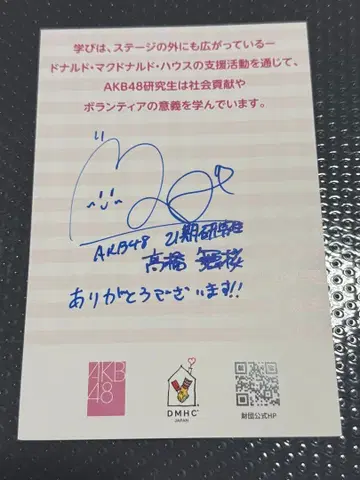 学びは、ステージの外にも広がっているー
ドナルド・マクドナルド・ハウスの支援活動を通じて、
AKB48研究生は社会貢献や
ボランティアの意義を学んでいます。
AKB48 21期研究生
高橋 舞桜
ありがとうございます!!
AKB
48
DMHC
JAPAN
財団公式HP